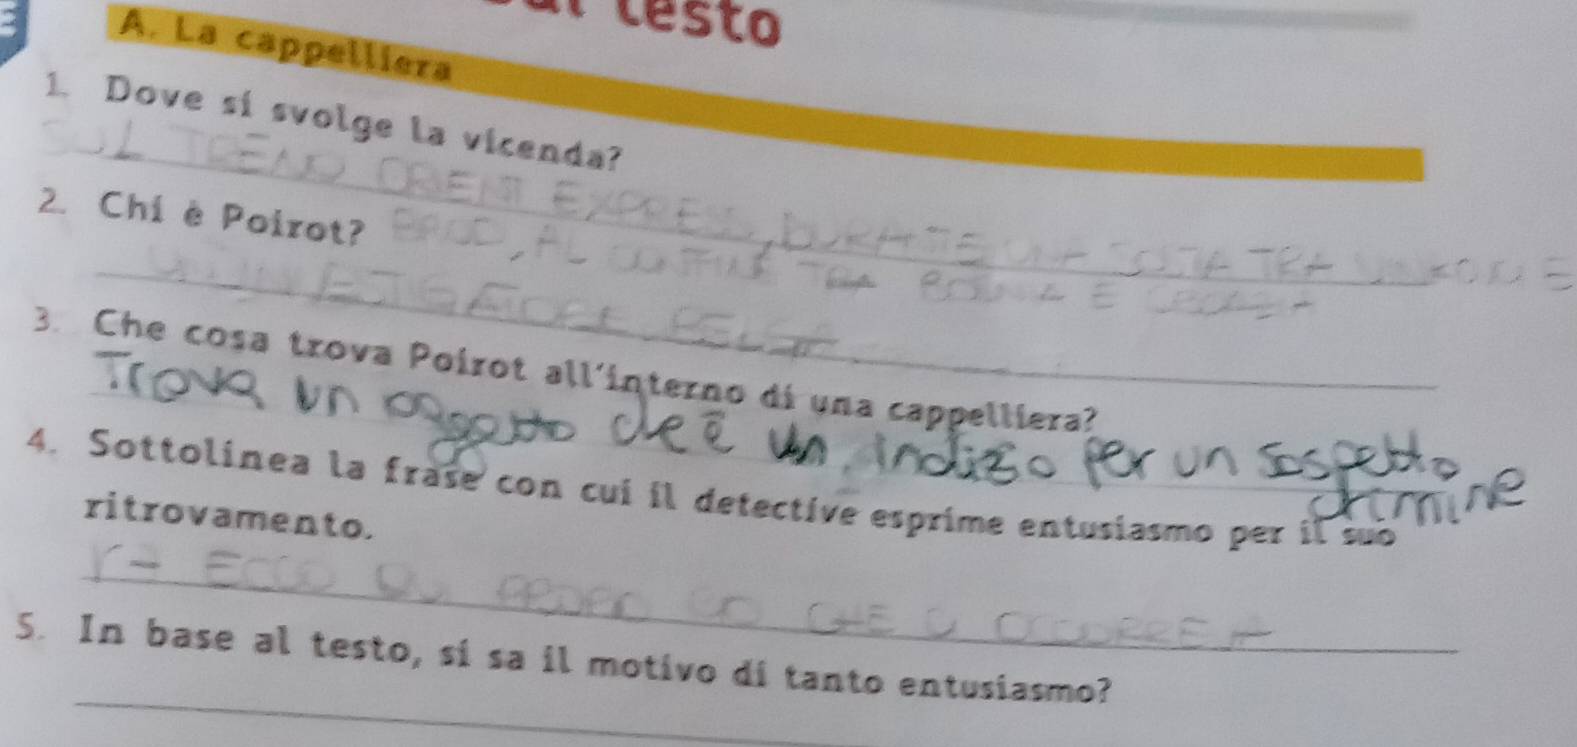 testo
A. La cappelliera
1. Dove si svolge la vicenda?
SUL TRENO ORIENT EXPRESS, DURANTE UNA SOSTA TRA VINKOVCI E
BROD, AL CONFINE TRA BOSNIA E CROAZIA
2. Chi è Poirot?
UN INVESTIGATORE BELGA
3. Che cosa trova Poirot all'interno di una cappelliera?
Trova un oggetto che è un indizio per un sospetto
crimine
4. Sottolinea la frase con cui il detective esprime entusiasmo per il suo
ritrovamento.
ECCO CHE CI OCCORRE
5. In base al testo, si sa il motivo di tanto entusiasmo?